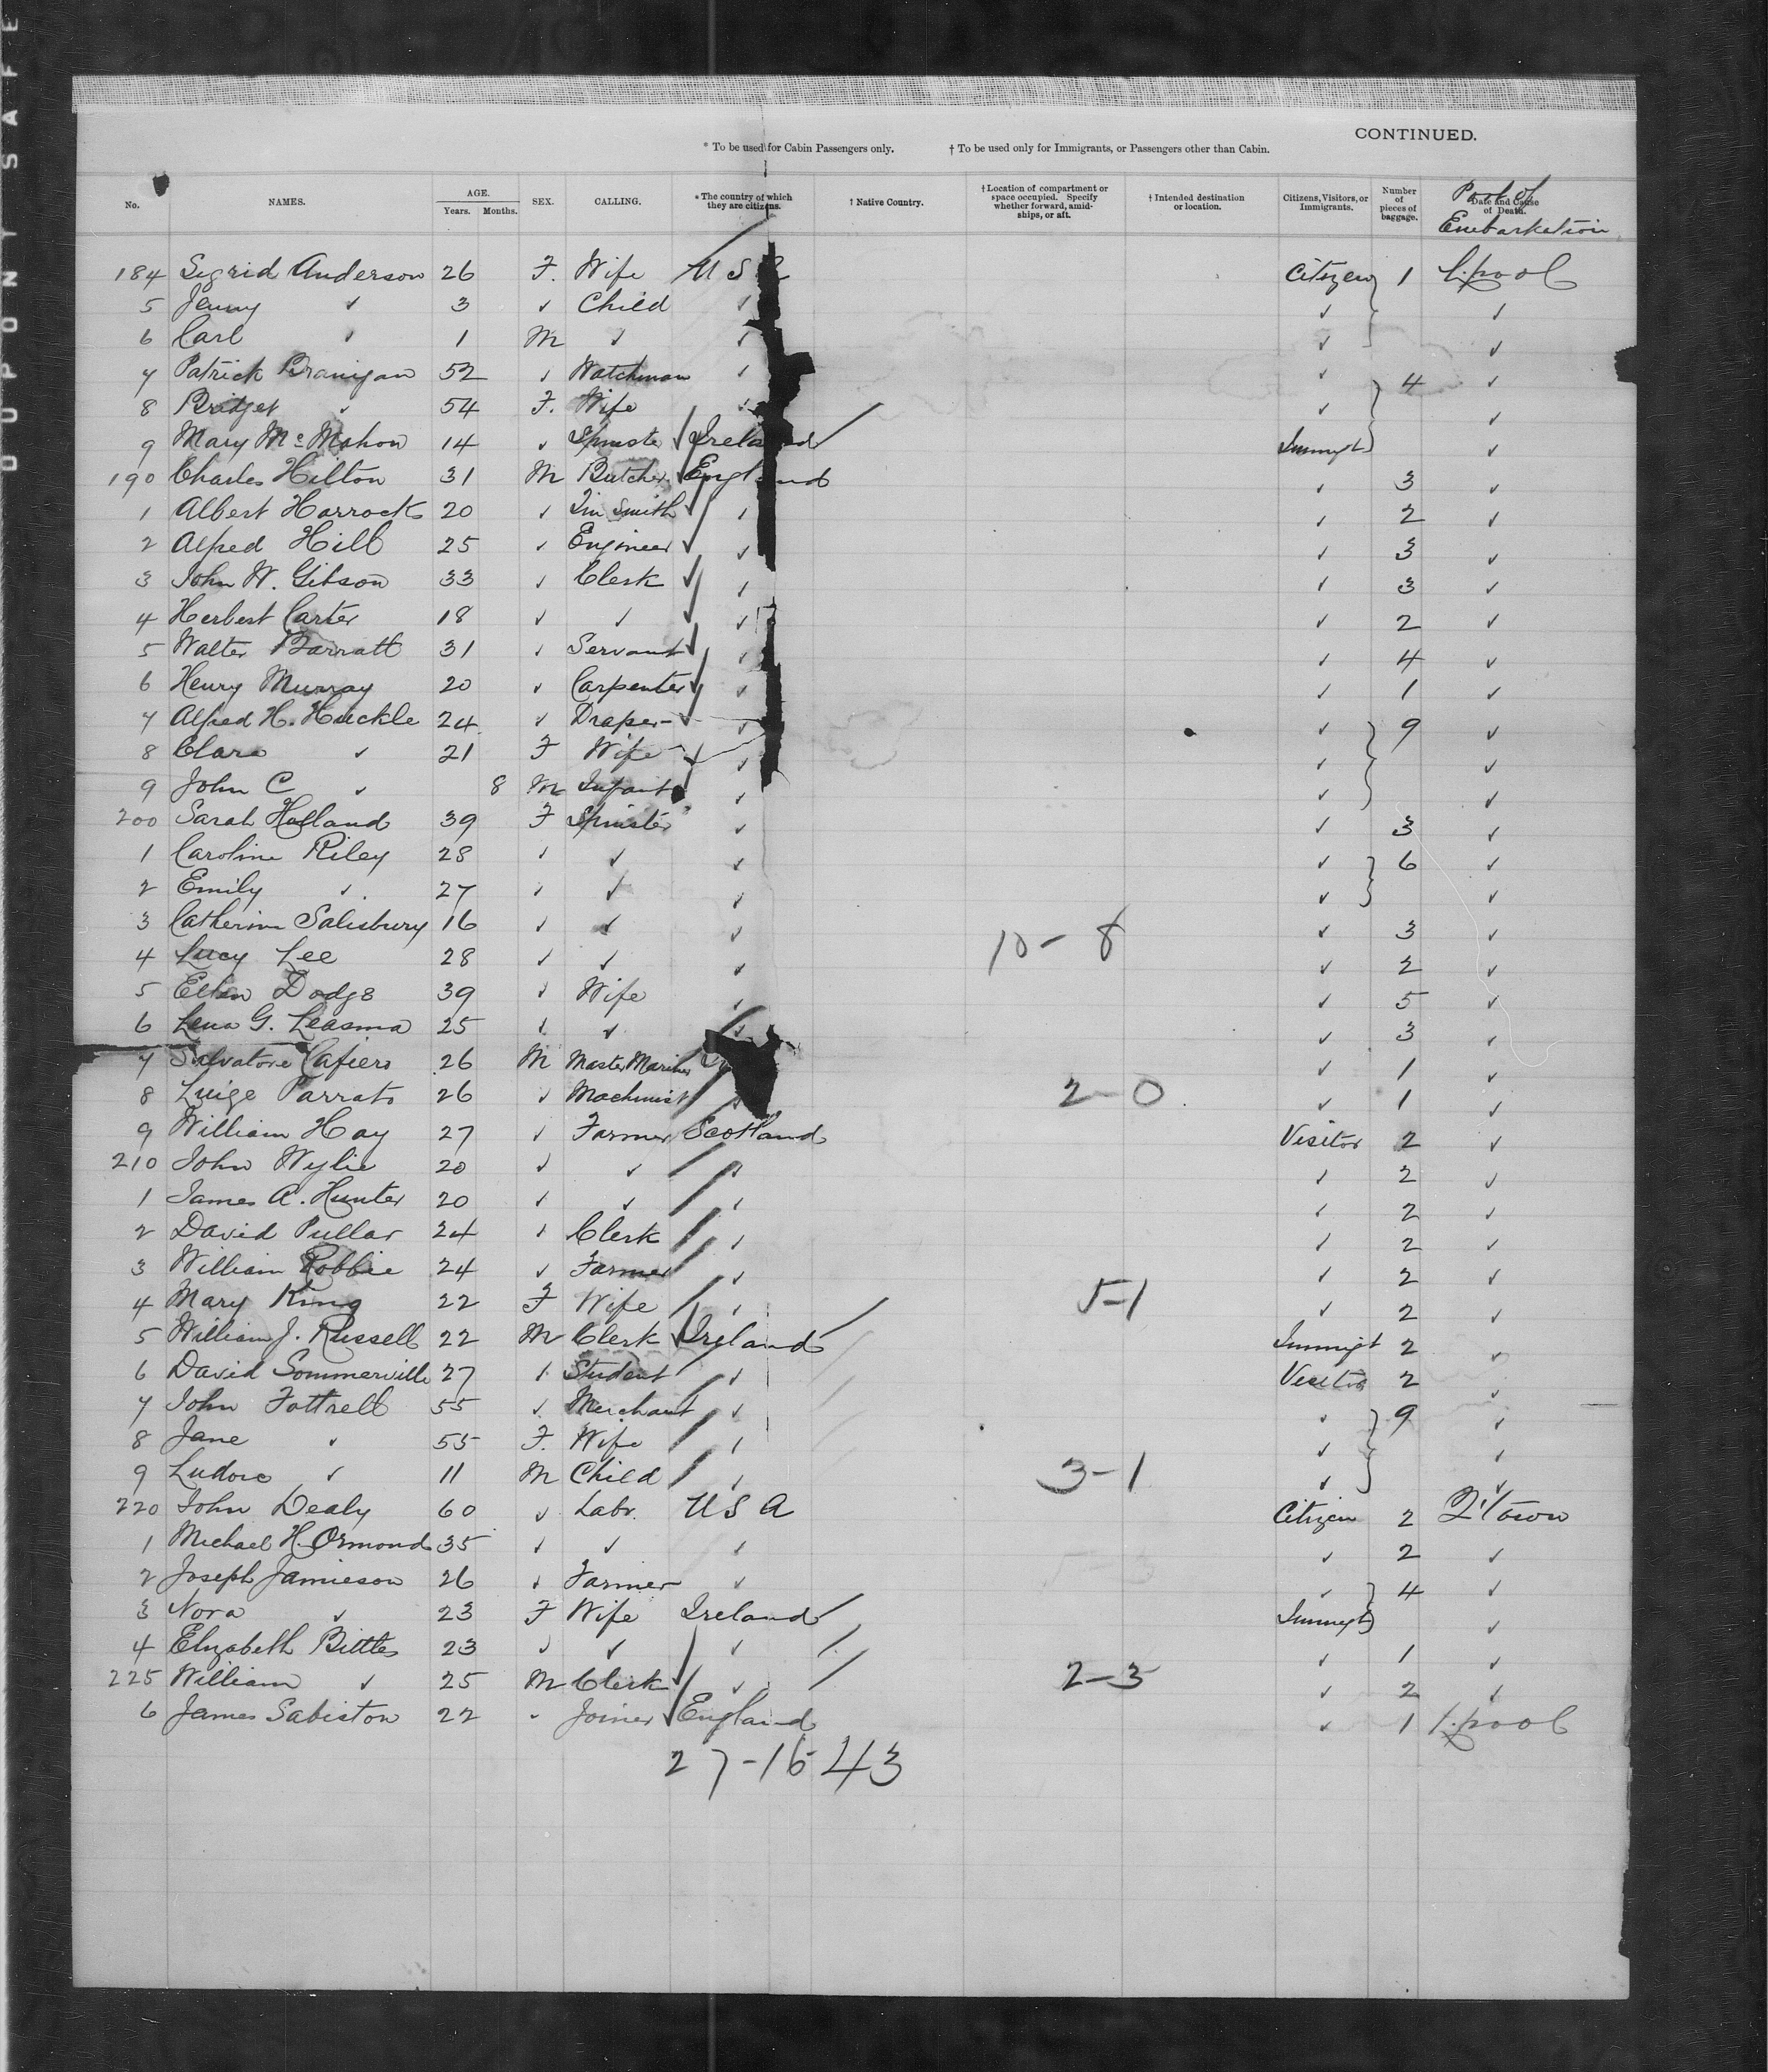 DUPONT SAFE
CONTINUED.
* To be used for Cabin Passengers only. † To be used only for Immigrants, or Passengers other than Cabin.
No. NAMES. AGE. Years. Months. SEX. CALLING. * The country of which they are citizens. † Native Country. † Location of compartment or space occupied. Specify whether forward, amidships, or aft. † Intended destination or location. Citizens, Visitors, or Immigrants. Number of pieces of baggage. Date and Cause of Death. Port of Embarkation
184 Sigrid Anderson 26 F. Wife U S A Citizen 1 L'pool
5 Jenny ✓ 3 ✓ Child ✓ ✓ ✓
6 Carl ✓ 1 M ✓ ✓ ✓ ✓
7 Patrick Branigan 52 ✓ Watchman ✓ ✓ 4 ✓
8 Bridget ✓ 54 F. Wife ✓ ✓ ✓
9 Mary McMahon 14 ✓ Spinster Ireland Immigt ✓
190 Charles Hilton 31 M Butcher England ✓ 3 ✓
1 Albert Horrocks 20 ✓ Tin Smith ✓ ✓ 2 ✓
2 Alfred Hill 25 ✓ Engineer ✓ ✓ 3 ✓
3 John W. Gibson 33 ✓ Clerk ✓ ✓ 3 ✓
4 Herbert Carter 18 ✓ ✓ ✓ ✓ 2 ✓
5 Walter Barratt 31 ✓ Servant ✓ ✓ 4 ✓
6 Henry Murray 20 ✓ Carpenter ✓ ✓ 1 ✓
7 Alfred H. Huckle 24 ✓ Draper ✓ ✓ 9 ✓
8 Clara ✓ 21 F Wife ✓ ✓ ✓
9 John C ✓ 8 M Infant ✓ ✓ ✓
200 Sarah Holland 39 F Spinster ✓ ✓ 3 ✓
1 Caroline Riley 28 ✓ ✓ ✓ ✓ 6 ✓
2 Emily ✓ 27 ✓ ✓ ✓ ✓ ✓
3 Catherine Salisbury 16 ✓ ✓ ✓ 10-8 ✓ 3 ✓
4 Lucy Lee 28 ✓ ✓ ✓ ✓ 2 ✓
5 Ellen Dodge 39 ✓ Wife ✓ ✓ 5 ✓
6 Lena G. Leasma 25 ✓ ✓ ✓ ✓ 3 ✓
7 Salvatore Cafiero 26 M Master Mariner ✓ 1 ✓
8 Luige Parrato 26 ✓ Machinist 2-0 ✓ 1 ✓
9 William Hay 27 ✓ Farmer Scotland Visitor 2 ✓
210 John Wylie 20 ✓ ✓ ✓ ✓ 2 ✓
1 James A. Hunter 20 ✓ ✓ ✓ ✓ 2 ✓
2 David Pullar 24 ✓ Clerk ✓ ✓ 2 ✓
3 William Robbie 24 ✓ Farmer ✓ ✓ 2 ✓
4 Mary King 22 F Wife ✓ 5-1 ✓ 2 ✓
5 William J. Russell 22 M Clerk Ireland Immigt 2 ✓
6 David Sommerville 27 ✓ Student ✓ Visitor 2 ✓
7 John Fottrell 55 ✓ Merchant ✓ ✓ 9 ✓
8 Jane ✓ 55 F. Wife ✓ ✓ ✓
9 Ludovc ✓ 11 M Child ✓ 3-1 ✓ ✓
220 John Dealy 60 ✓ Labr. U S A Citizen 2 Q'Town
1 Michael H. Ormond 35 ✓ ✓ ✓ ✓ 2 ✓
2 Joseph Jamieson 26 ✓ Farmer ✓ ✓ 4 ✓
3 Nora ✓ 23 F Wife Ireland Immigt ✓
4 Elizabeth Bittles 23 ✓ ✓ ✓ ✓ 1 ✓
225 William ✓ 25 M Clerk ✓ 2-3 ✓ 2 ✓
6 James Sabiston 22 ✓ Joiner England ✓ 1 L'pool
27-16 43